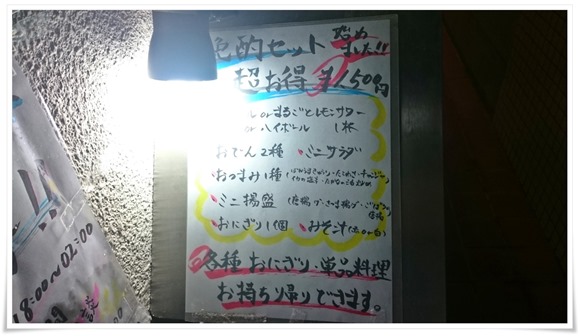 晩酌セット 始めました!!
超お得 ¥1,150円
ル or まるごとレモンサワー
or ハイボール 1杯
おでん2種 ミニサラダ
おつまみ1種
ミニ揚盛
おにぎり1個 みそ汁(赤 or 白)
各種 おにぎり・単品料理
お持ち帰りできます。
18:00〜02:00